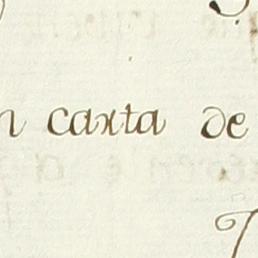 n carta de